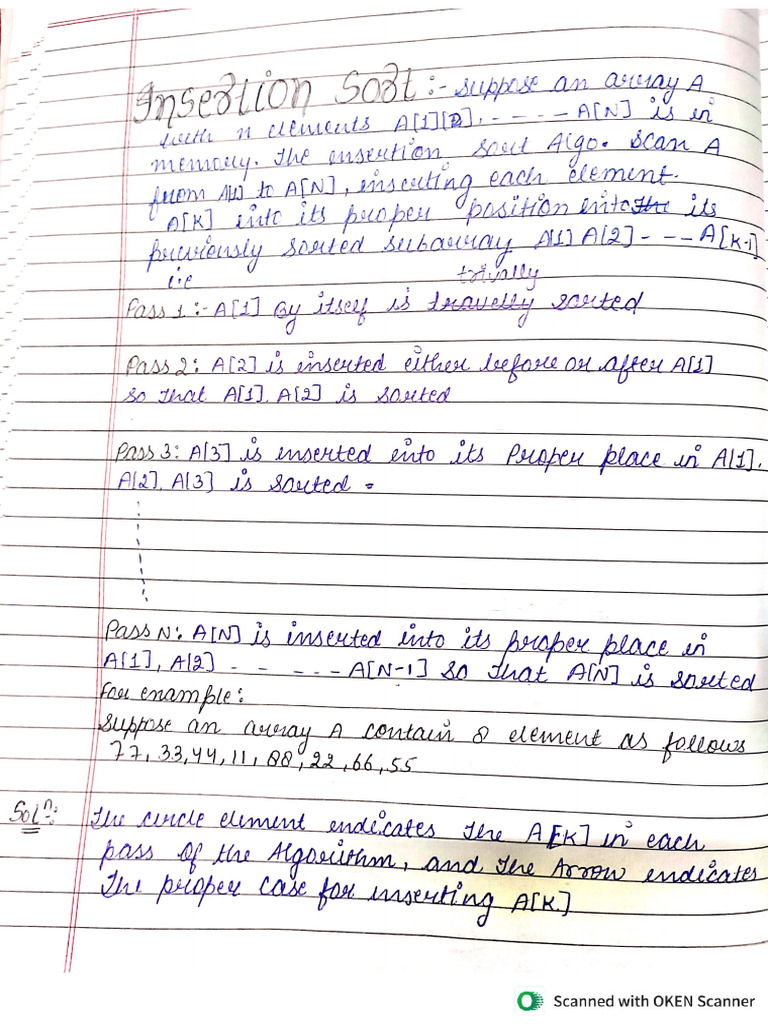 Insertion Sort :- suppose an array A
with n elements A[1][2], - - - - - A[N] is in
memory. The insertion sort Algo. Scan A
from A[1] to A[N], inserting each element.
A[K] into its proper position into the its
previously sorted subarray A[1] A[2] - - - A[K-1]
i.e
trivally
Pass 1 :- A[1] By itself is travelly sorted
Pass 2: A[2] is inserted either before or after A[1]
so that A[1], A[2] is sorted
Pass 3: A[3] is inserted into its Proper place in A[1],
A[2], A[3] is sorted.
Pass N: A[N] is inserted into its proper place in
A[1], A[2] - - - - - - A[N-1] so that A[N] is sorted
for example:
suppose an array A contain 8 element as follows
77, 33, 44, 11, 88, 22, 66, 55
Solⁿ: The circle element endicates the A[K] in each
pass of the Algorithm, and the Arrow endicates
the proper case for inserting A[K.]
Scanned with OKEN Scanner